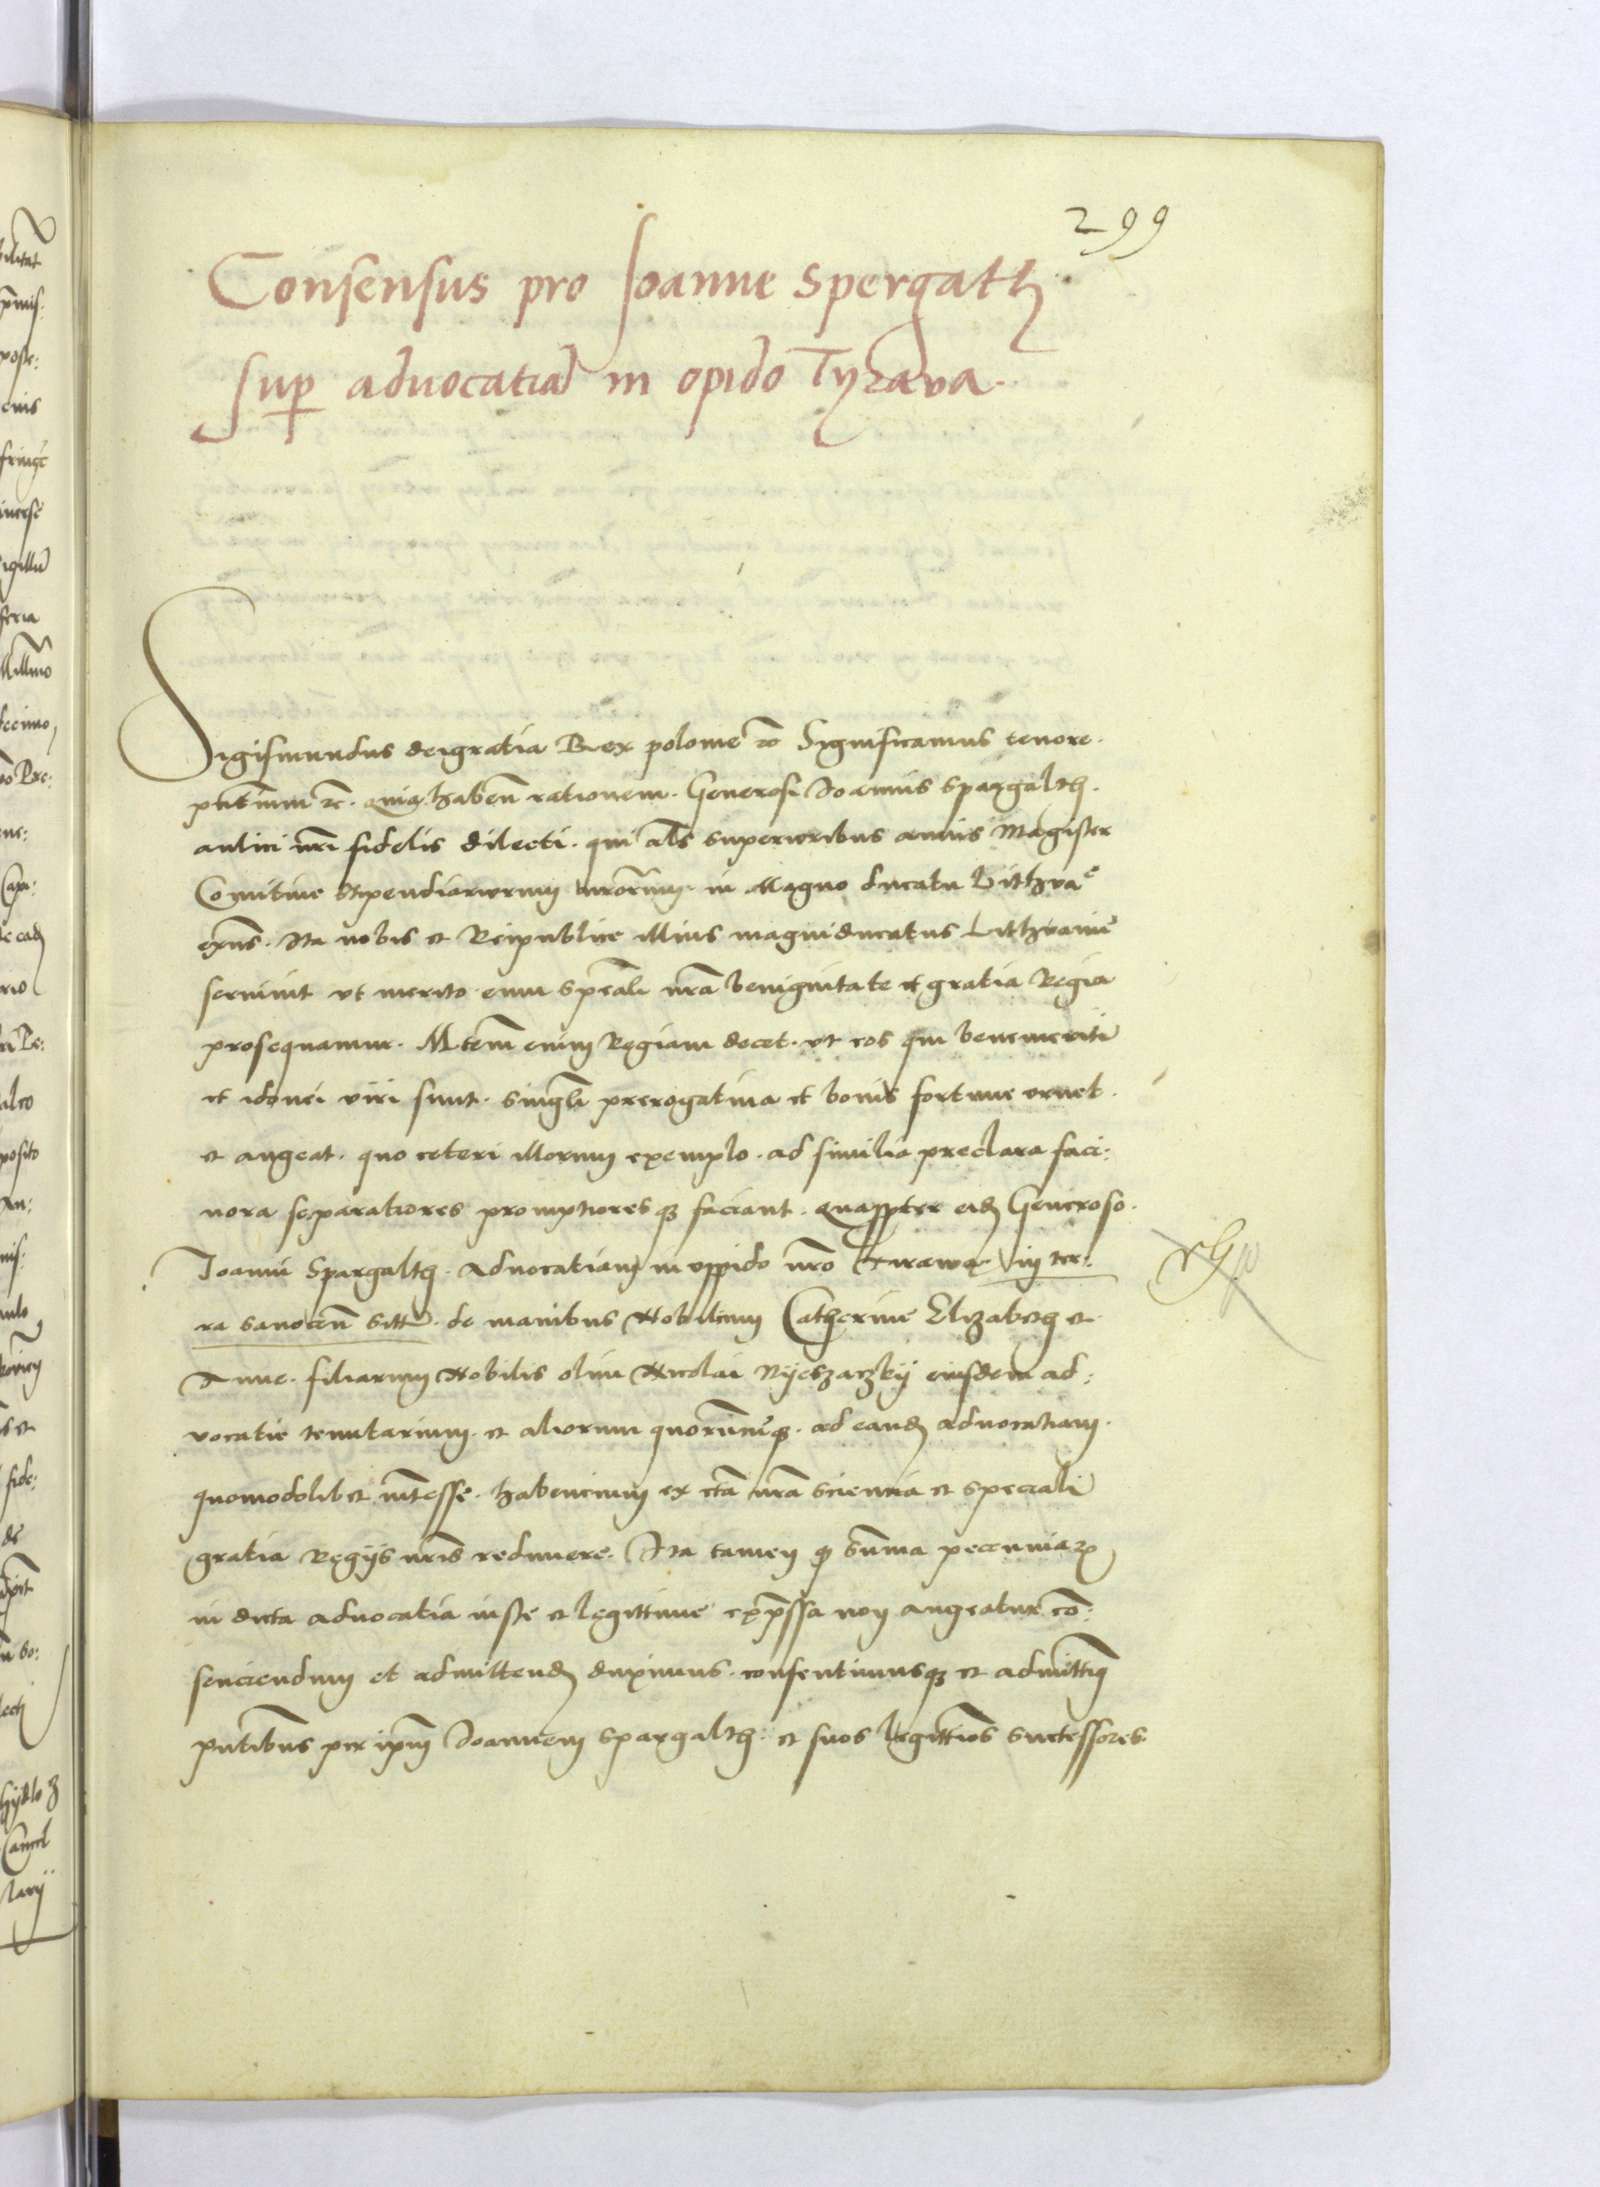 299
Consensus pro Joanne Spergath
sup advocatiā in opido Tyrava.
Sigismundus dei gratia Rex polonie etc Significamus tenore.
pntium etc. quia habeñ rationem. Generosi Joannis Spargalth.
aulici nr̃i fidelis dilecti. qui alĩs superioribus annis Magister
Comitive stipendiariorum nrorum in Magno ducatu Lithvaẽ
exñs. Ita nobis et Reipublice illius magniducatus Lithvanie
servivit ut merito eum spẽali nr̃a benignitate et gratia Regia
prosequamur. Mtem̃ enim Regiam decet. ut eos qui benemeriti
et idonei viri sunt. singl̃i prerogativa et bonis fortune ornet.
et augeat. quo ceteri illorum exemplo. ad similia preclara faci:
nora se paratiores promptioresq3 faciant. quappter eid̃ Generoso.
Joanni Spargalth. Advocatiam in oppido nr̃o Tirawa in ter:
ra Sanoceñ sitt̃. de manibus Nobilium Catherine Elizabeth et
Anne. filiarum Nobilis olim Nicolai Nyeszaczky eiusdem ad:
vocatie tenutarium. et aliorum quorumcũq3. ad eand̃ advocatiam.
quomodolibet int̃esse. habencium ex ct̃a nr̃a sciencia et speciali
gratia Regijs nr̃is redimere. Ita tamen q̃ sum̃a pecuniar̃
in dicta advocatia iuste et legittime exp̃ssa non augeatur cõ:
senciendum et admittend̃ duximus. consentimusq3 et admittim̃
pñtibus per ipm̃ Joannem Spargalth. et suos legittimos successores.